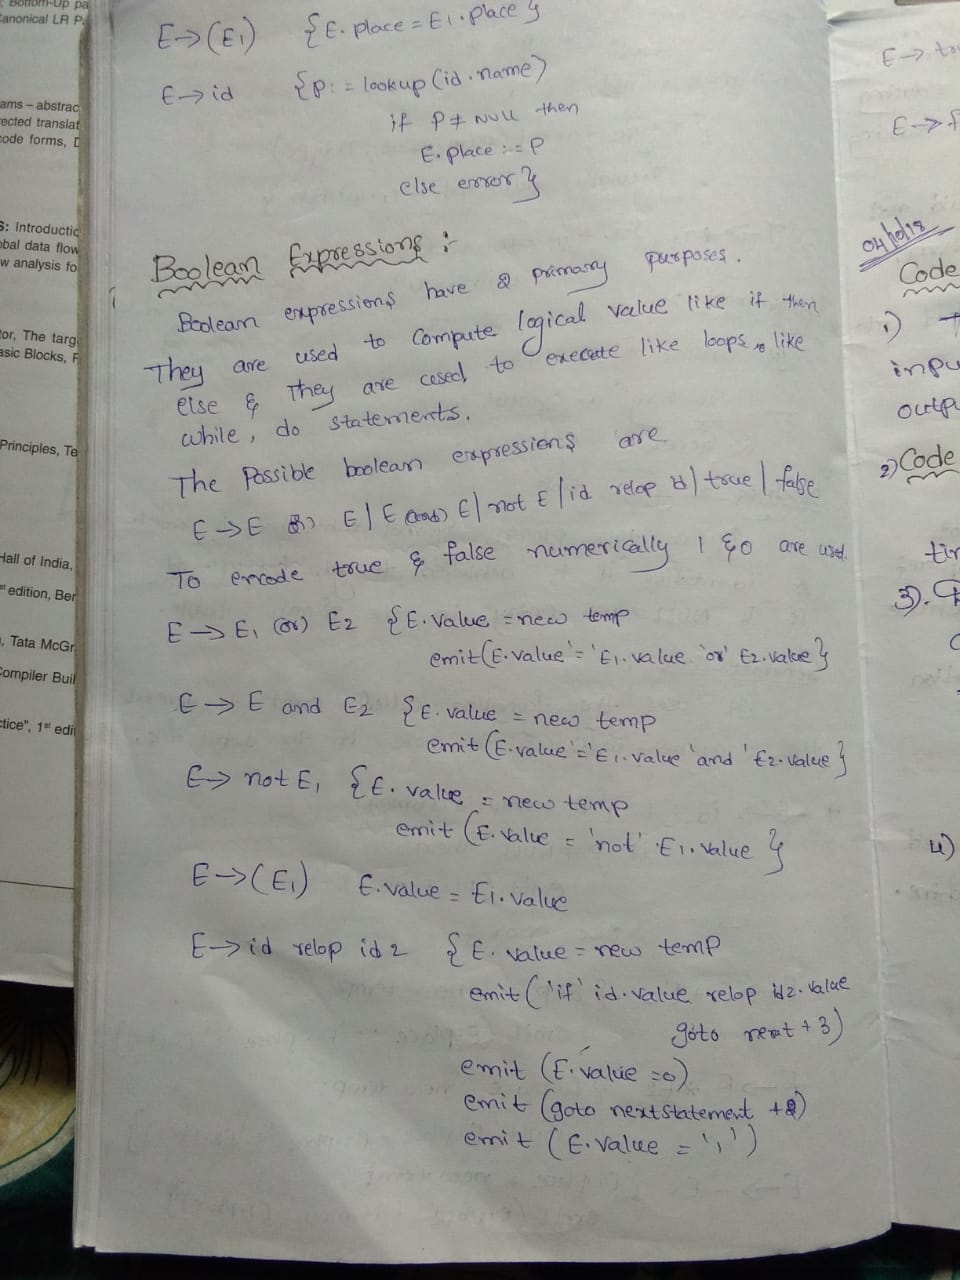 : Bottom-Up pa
Canonical LR P
ams – abstrac
ected translat
code forms, D
S: Introductio
obal data flow
w analysis fo
tor, The targ
asic Blocks, F
Principles, Te
Hall of India,
st edition, Ber
, Tata McGr
Compiler Buil
ctice", 1st edi
E → (E1) {E. place = E1. place}
E → id {P: = lookup (id. name)
if P ≠ NULL then
E. place : = P
else error}
Boolean Expressions :-
Boolean expressions have 2 primary purposes.
They are used to compute logical value like if then
else & They are used to execute like loops like
while, do statements.
The Possible boolean expressions are
E → E or E | E and E | not E | id relop id | true | false
To encode true & false numerically 1 & 0 are used.
E → E1 (or) E2 {E. value = new temp
emit(E. value '=' E1. value 'or' E2. value}
E → E and E2 {E. value = new temp
emit (E. value '=' E1. value 'and' E2. value}
E → not E1 {E. value = new temp
emit (E. value = 'not' E1. value }
E → (E1) E. value = E1. value
E → id relop id 2 {E. value = new temp
emit ( 'if' id. value relop id2. value
goto next + 3)
emit (E. value = 0)
emit (goto nextstatement + 2)
emit (E. value = '1')
E → tru
E → f
04/10/18
Code
1)
inpu
outpu
2) Code
tin
3).
4)